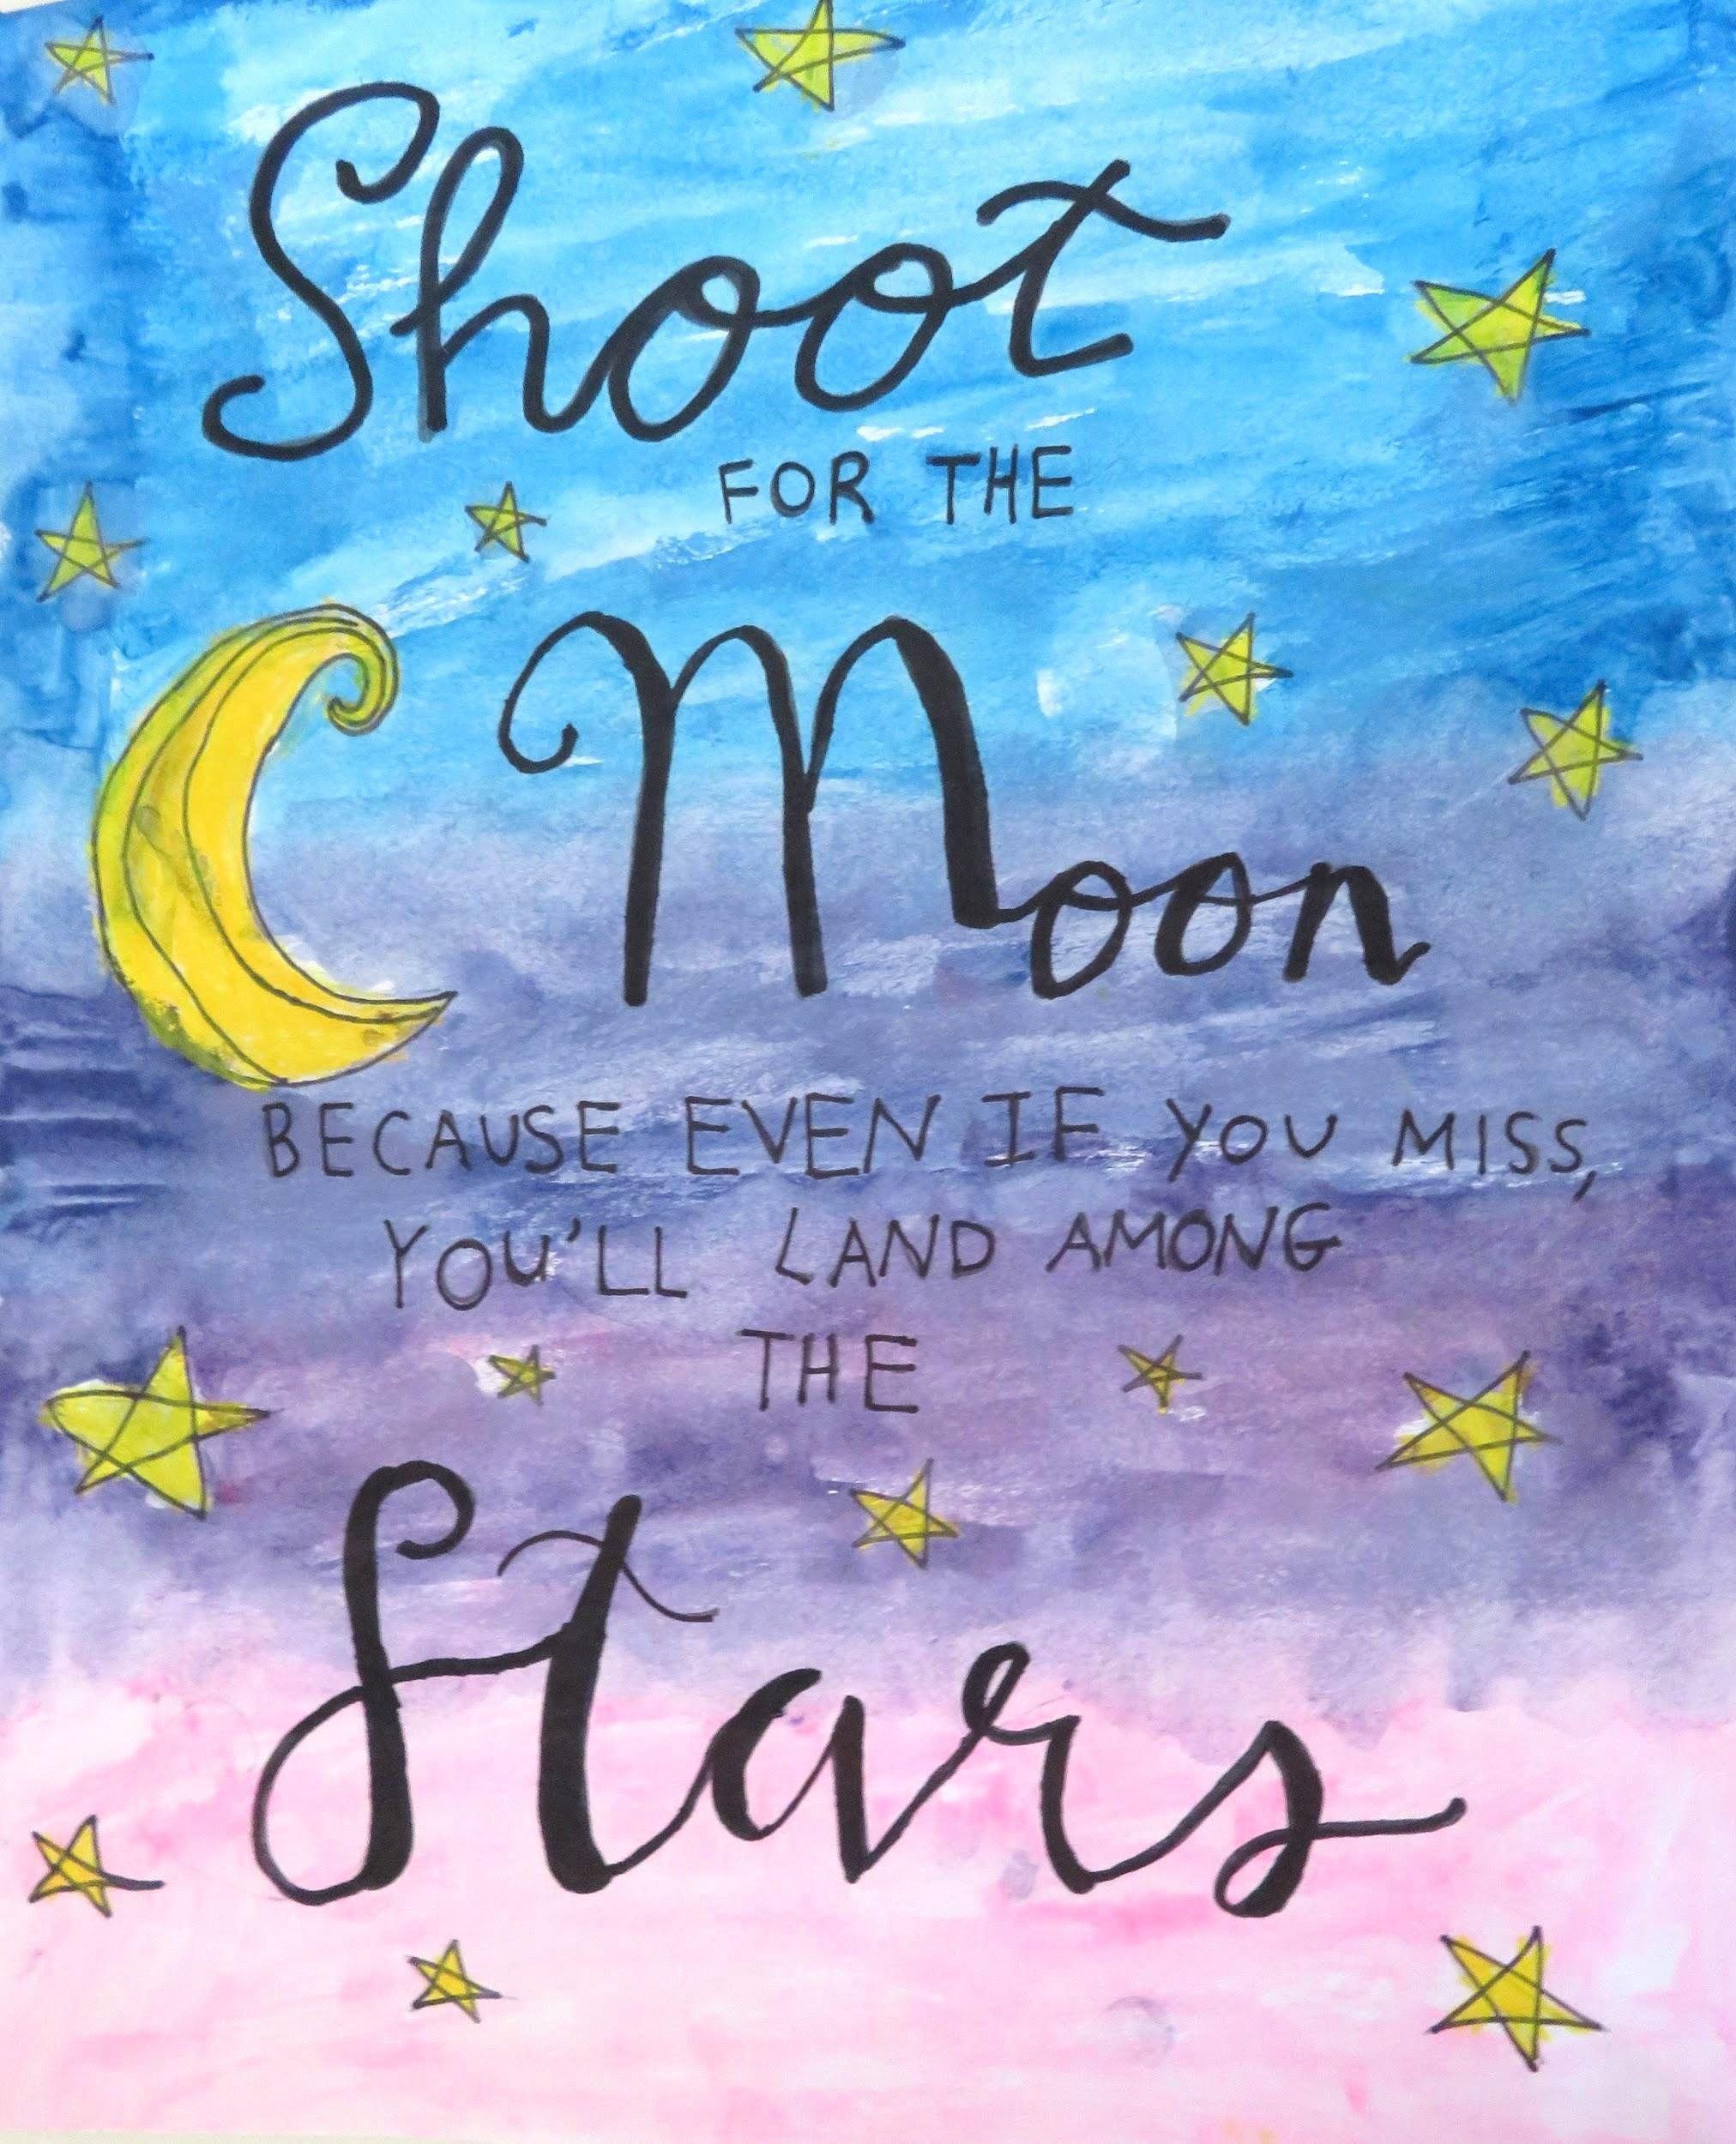 Shoot
FOR THE
Moon
BECAUSE EVEN IF YOU MISS,
YOU'LL LAND AMONG
THE
Stars